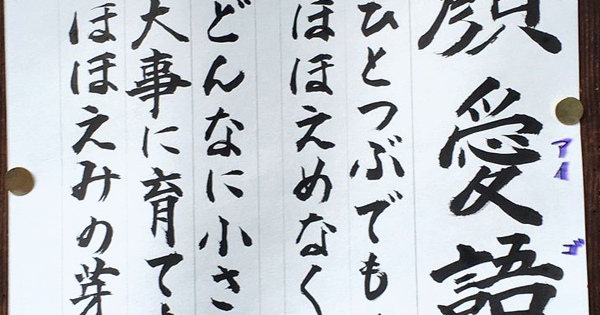 顔愛語
アイ ゴ
ひとつぶでも
ほほえめなく
どんなに小さ
大事に育てよ
ほほえみの芽